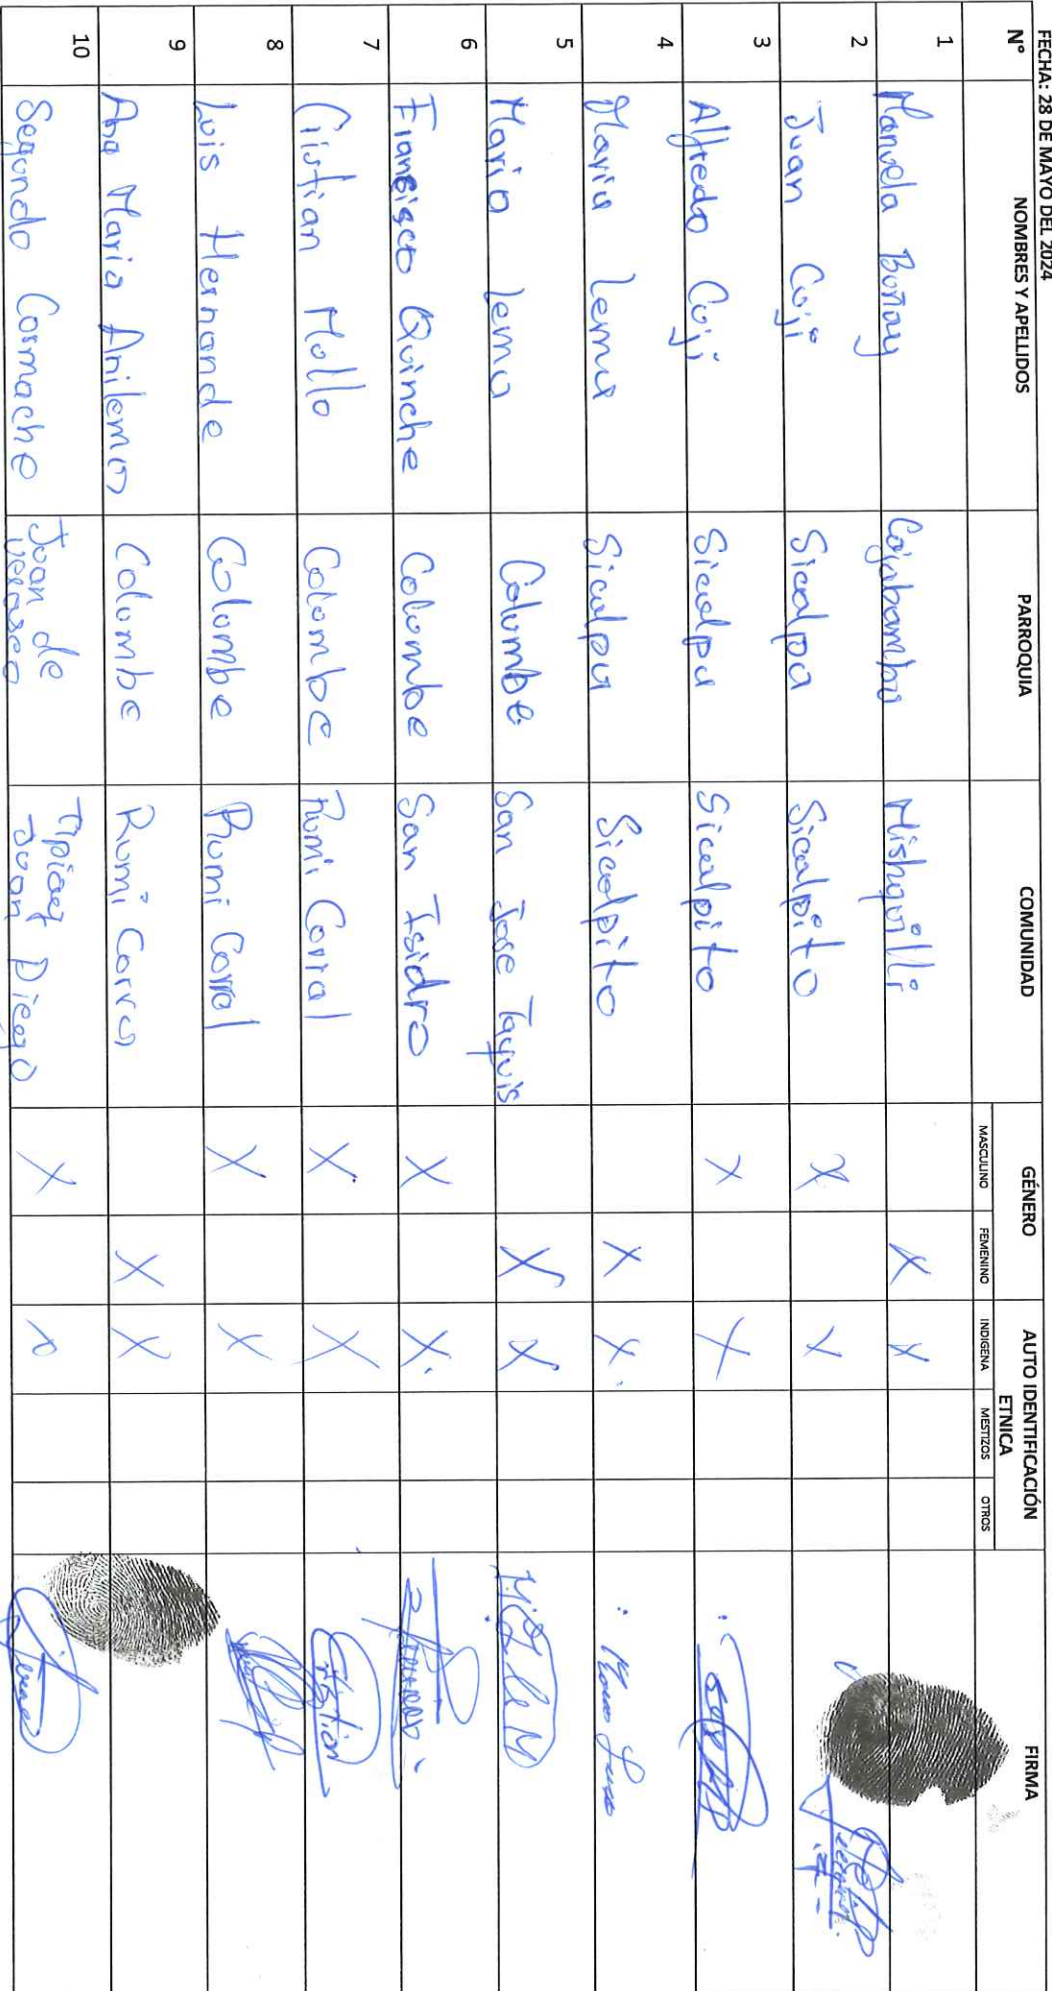 FECHA: 28 DE MAYO DEL 2024
N° NOMBRES Y APELLIDOS PARROQUIA COMUNIDAD GÉNERO AUTO IDENTIFICACIÓN ETNICA FIRMA
MASCULINO FEMENINO INDIGENA MESTIZOS OTROS
1 Manuela Boñay Cajabamba Mishquilli X X
2 Juan Cuji Sicalpa Sicalpito X X
3 Alfredo Cuji Sicalpa Sicalpito X X
4 Maria Lema Sicalpa Sicalpito X X
5 Maria Lema Columbe San Jose Taquis X X
6 Fransisco Quinche Columbe San Isidro X X
7 Cristian Mollo Colombe Rumi Corral X X Cristian
8 Luis Hernande Columbe Rumi Corral X X
9 Ana Maria Anilema Columbe Rumi Corral X X
10 Segundo Cormache Juan de Velasco Juan Diego X X